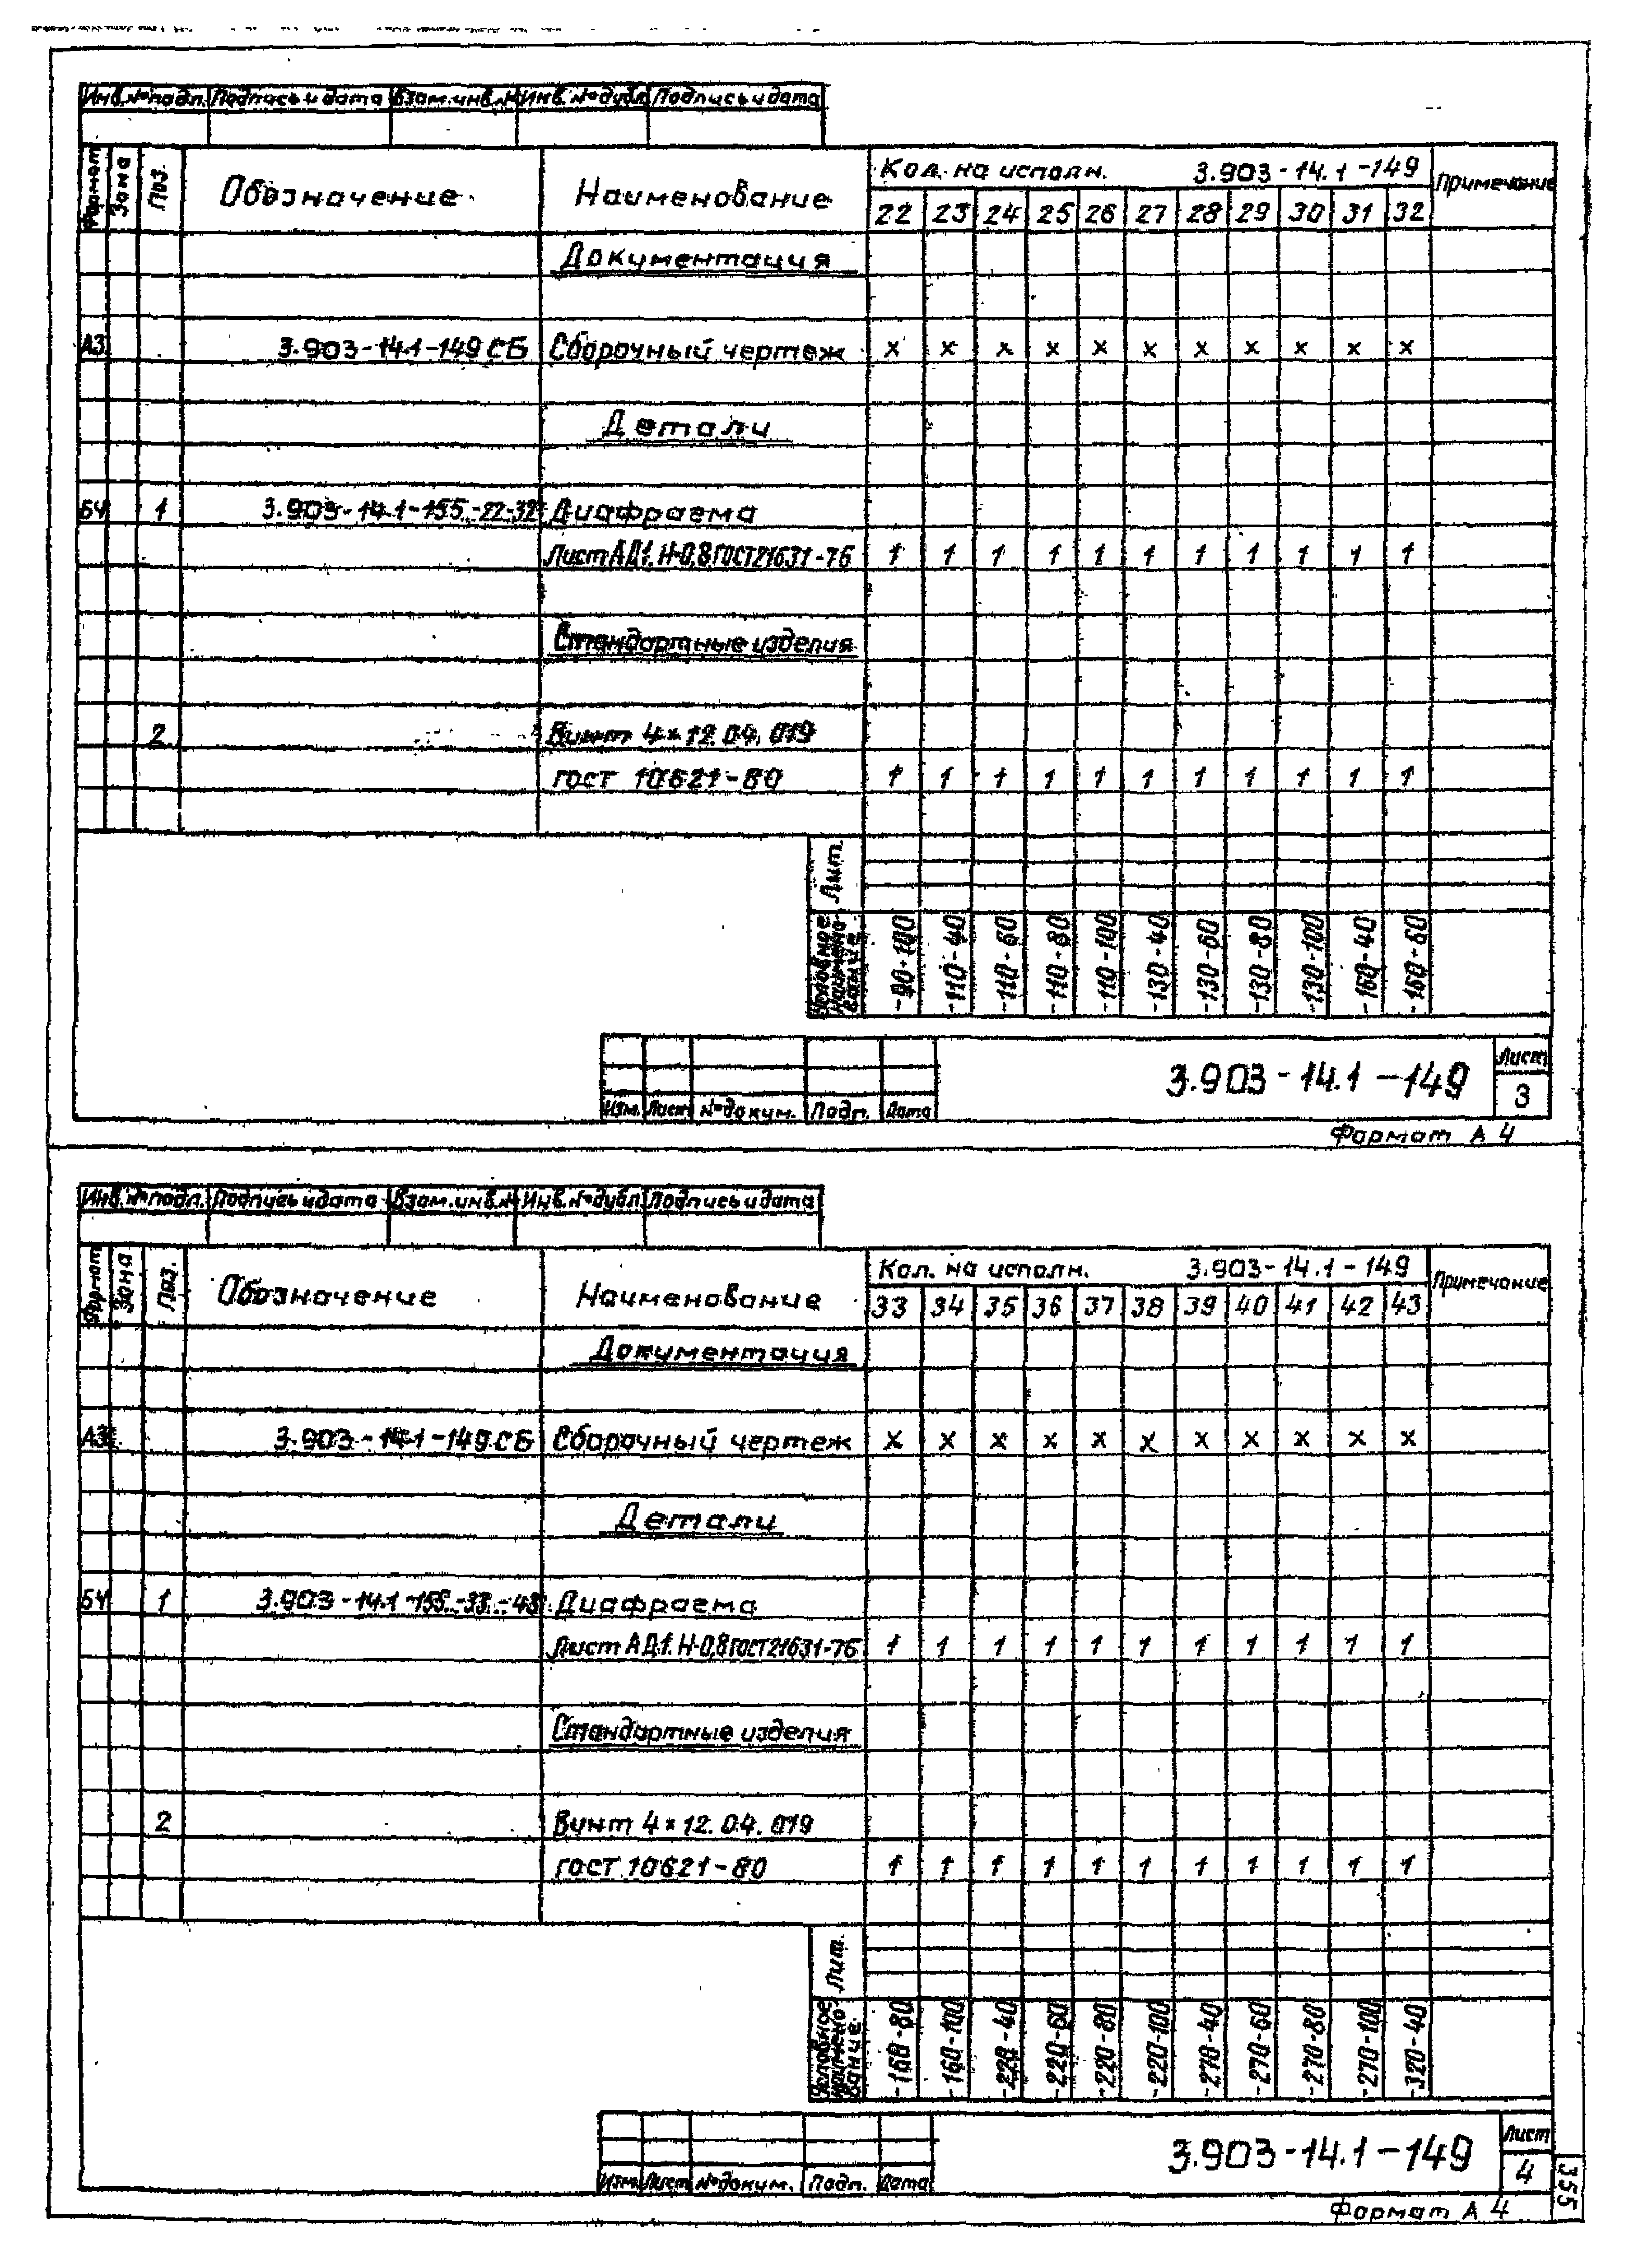 Инв.№ подл. Подпись и дата Взам.инв.№ Инв.№ дубл. Подпись и дата
Формат Зона Поз. Обозначение Наименование Кол. на исполн. 3.903-14.1-149 Примечание
22 23 24 25 26 27 28 29 30 31 32
Документация
А3 3.903-14.1-149 СБ Сборочный чертеж x x x x x x x x x x x
Детали
БЧ 1 3.903-14.1-155-22-32 Диафрагма
Лист АД1.Н-0,8 ГОСТ 21631-76 1 1 1 1 1 1 1 1 1 1 1
Стандартные изделия
2 Винт 4×12.04.019
ГОСТ 10621-80 1 1 1 1 1 1 1 1 1 1 1
Лит.
Условное наименование -90-100 -110-40 -110-60 -110-80 -110-100 -130-40 -130-60 -130-80 -130-100 -160-40 -160-60
3.903-14.1-149 Лист
3
Изм. Лист № докум. Подп. Дата
Формат А 4
Инв.№ подл. Подпись и дата Взам.инв.№ Инв.№ дубл. Подпись и дата
Формат Зона Поз. Обозначение Наименование Кол. на исполн. 3.903-14.1-149 Примечание
33 34 35 36 37 38 39 40 41 42 43
Документация
А3 3.903-14.1-149 СБ Сборочный чертеж x x x x x x x x x x x
Детали
БЧ 1 3.903-14.1-155-33-43 Диафрагма
Лист АД1.Н-0,8 ГОСТ 21631-76 1 1 1 1 1 1 1 1 1 1 1
Стандартные изделия
2 Винт 4×12.04.019
ГОСТ 10621-80 1 1 1 1 1 1 1 1 1 1 1
Лит.
Условное наименование -160-80 -160-100 -220-40 -220-60 -220-80 -220-100 -270-40 -270-60 -270-80 -270-100 -320-40
3.903-14.1-149 Лист
4
Изм. Лист № докум. Подп. Дата
Формат А 4
355